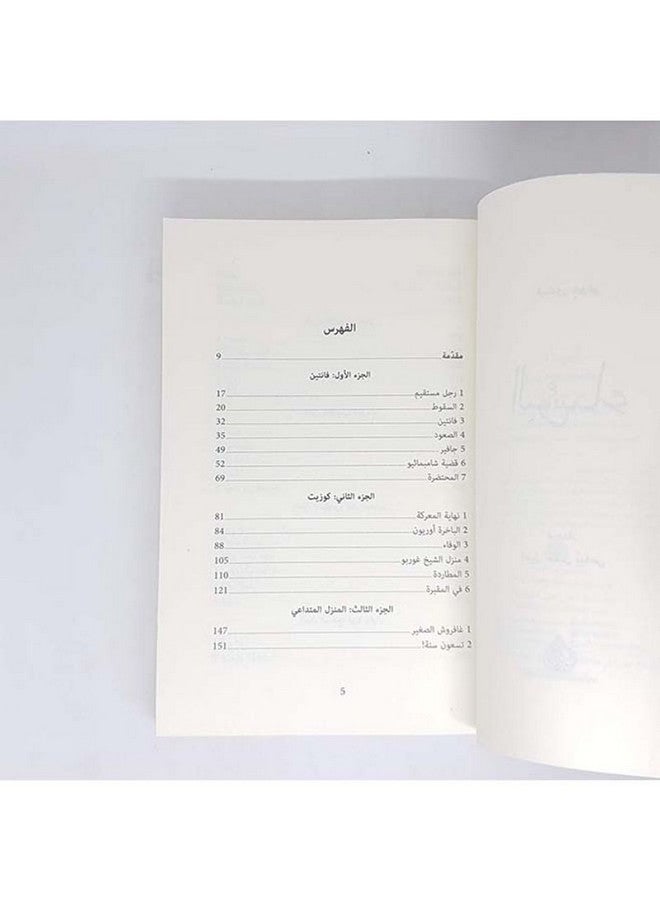 الفهرس
مقدّمة 9
الجزء الأول: فانتين
1 رجل مستقيم 17
2 السقوط 20
3 فانتين 32
4 الصعود 35
5 جافير 49
6 قضية شامبماثيو 52
7 المحتضرة 69
الجزء الثاني: كوزيت
1 نهاية المعركة 81
2 الباخرة أوريون 84
3 الوفاء 88
4 منزل الشيخ غوربو 105
5 المطاردة 110
6 في المقبرة 121
الجزء الثالث: المنزل المتداعي
1 غافروش الصغير 147
2 تسعون سنة! 151
5